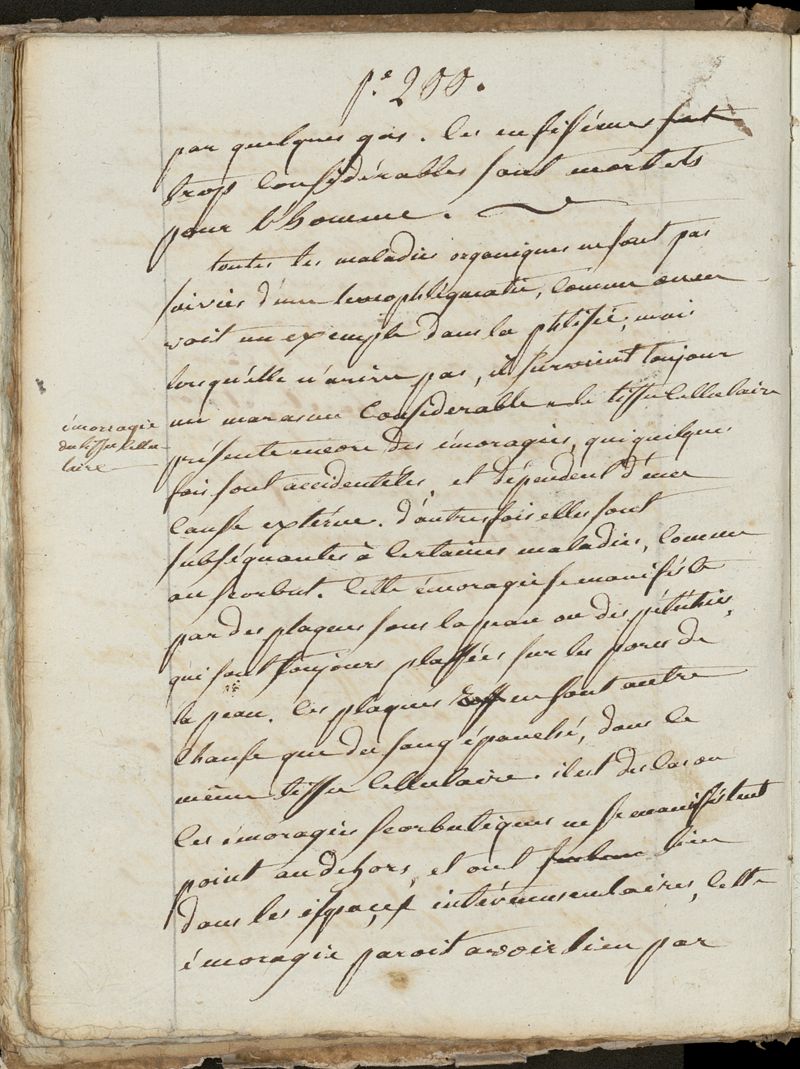 p.e 200.
par quelques gas. les enfisémes
trop considérables sont mortels
pour l'homme.
toutes les maladies organiques ne sont pas
suivies d'une leucophlégmatie, comme on en
voit un exemple dans la phtisie, mais
lorsqu'elle n'arive pas, il survient toujour
un marasme considerable. le tissu cellulaire
présente encore des émoragies, qui quelque
fois sont accidentéles, et dépendent d'une
cause extérne. d'autres fois elles sont
subséquantes à certaines maladies, comme
au scorbut. cette émoragie se manifeste
par des plaques sous la peau ou des pétéchies,
qui sont toujours plassées sur les pores de
la peau. les plaques ne sont autre
chause que du sang épanché, dans le
même tissu cellulaire. il est des cas ou
les émoragies scorbutiques ne se manifestent
point au dehors, et ont lieu
dans les espaces intérmusculaires, cette
émoragie paroit avoir lieu par
émorragie
du tissu cellu-
laire